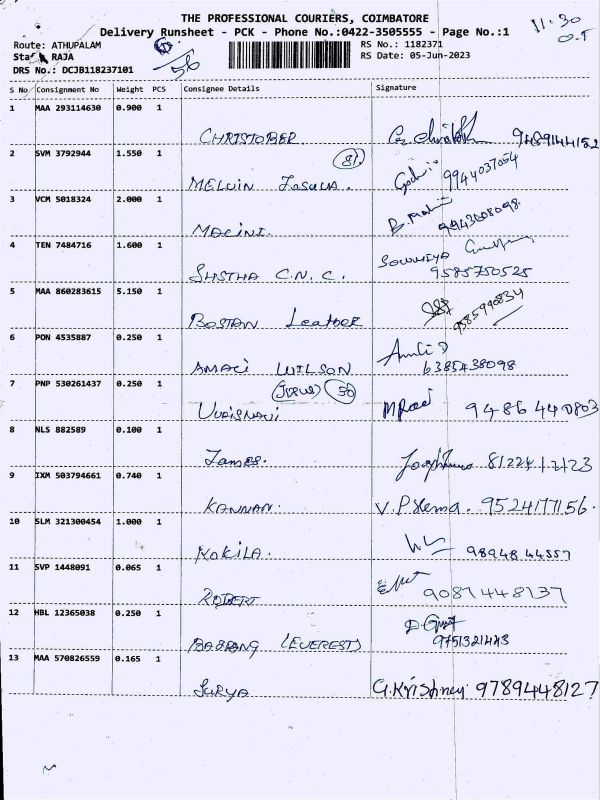 THE PROFESSIONAL COURIERS, COIMBATORE
Delivery Runsheet - PCK - Phone No.:0422-3505555 - Page No.:1
11.30
Route: ATHUPALAM
RS No.: 1182371
RAJA
56
RS Date: 05-Jun-2023
DRS No.: DCJB118237101
S No Consignment No Weight PCS Consignee Details Signature
1 MAA 293114630 0.900 1
CHRISTOBER 9489144152
2 SVM 3792944 1.550 1
81.
MELVIN 9944037054
3 VCM 5018324 2.000 1
4 TEN 7484716 1.600 1
Sowmiya
C.N.C. 9585750525
5 MAA 860283615 5.150 1
BOSTAN Leather
6 PON 4535887 0.250 1
WILSON 6385438098
7 PNP 530261437 0.250 1
50
9486440803
8 NLS 882589 0.100 1
James.
9 IXM 503794661 0.740 1
KANNAN. V.P. Hema. 9524177156.
10 SLM 321300454 1.000 1
KOKILA. 98948 44557
11 SVP 1448091 0.065 1
ROBERT 9087448137
12 HBL 12365038 0.250 1
(EVEREST)
13 MAA 570826559 0.165 1
SURYA G.Krishnen 9789448127